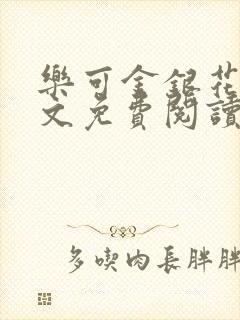 樂可金銀花
文免費閱讀
多喫肉長胖胖